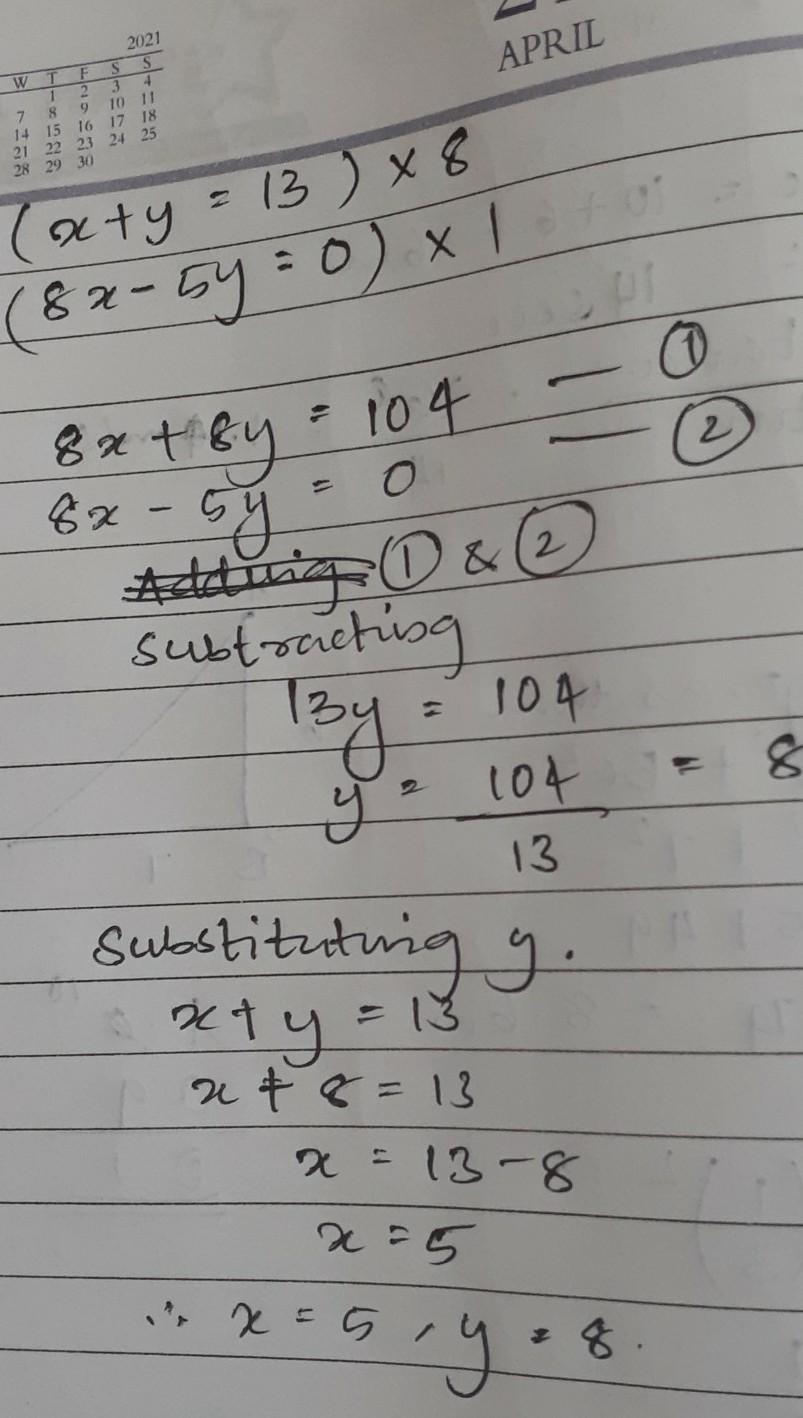 2021
APRIL
W T F S S
1 2 3 4
7 8 9 10 11
14 15 16 17 18
21 22 23 24 25
28 29 30
(x+y = 13) × 8
(8x - 5y = 0) × 1
8x + 8y = 104 — ①
8x - 5y = 0 — ②
Adding ① & ②
Subtracting
13y = 104
y = 104/13 = 8
Substituting y.
x + y = 13
x + 8 = 13
x = 13 - 8
x = 5
∴ x = 5, y = 8.